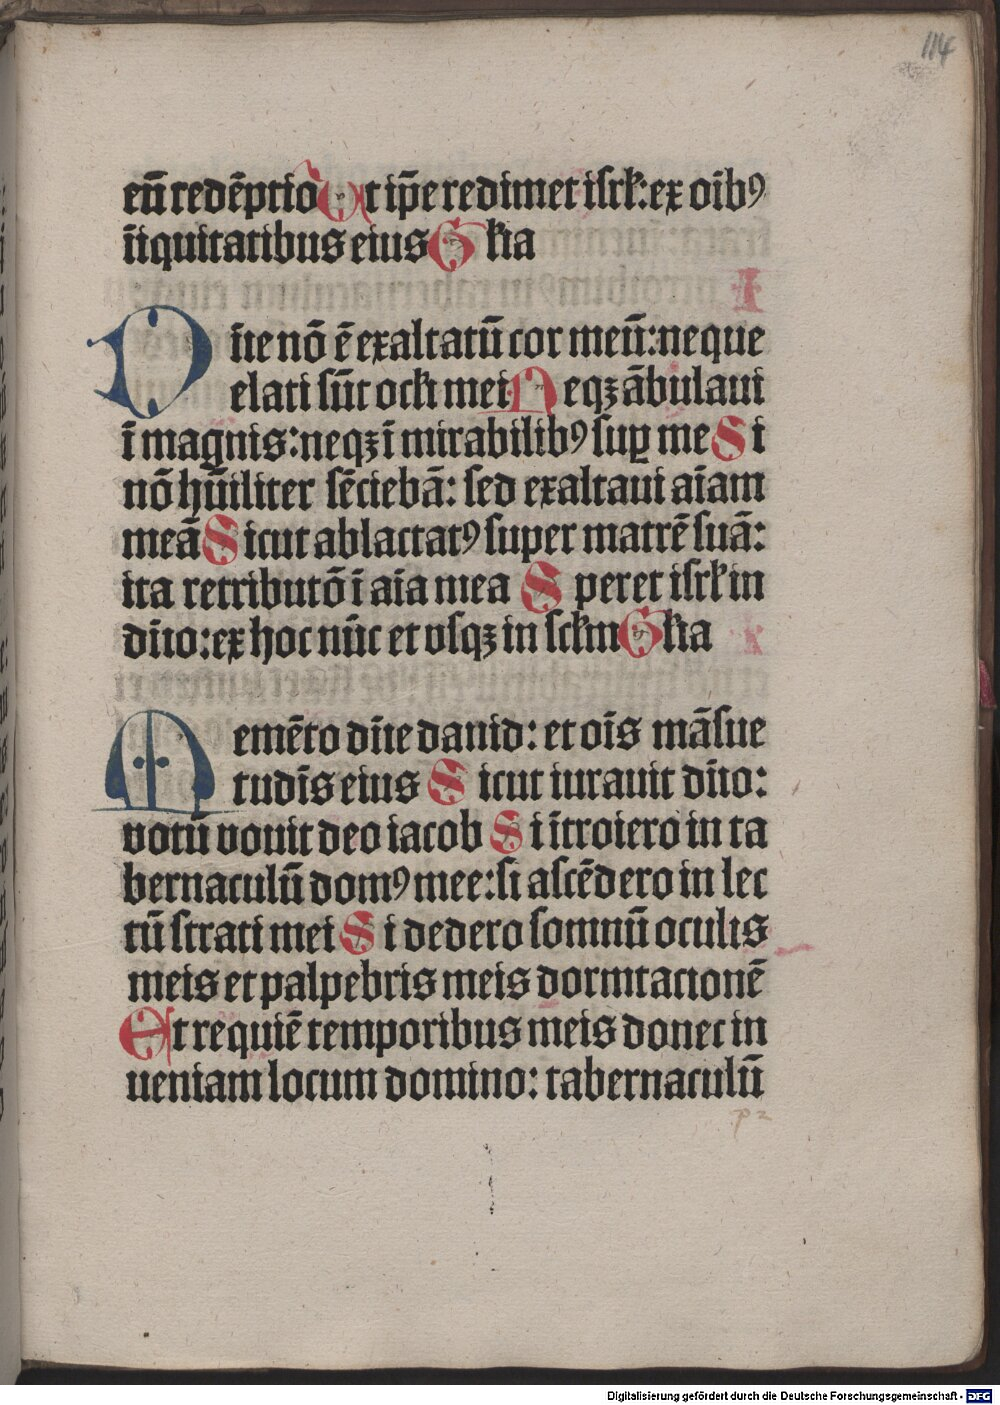 114
eū redēptio Et ip̄e redimet isrł: ex oībꝯ
īiquitatibus eius Głia
Dn̄e nō ē exaltatū cor meū: neque
elati sūt ocłi mei Neqꝫ ābulaui
ī magnis: neqꝫ ī mirabilibꝯ suꝑ me Si
nō hūiliter sēciebā: sed exaltaui aīam
meā Sicut ablactatꝯ super matrē suā:
ita retributō ī aīa mea Speret isrł in
dn̄o: ex hoc nūc et vsqꝫ in scłm Głia
Memēto dn̄e dauid: et oīs māsue
tudīs eius Sicut iurauit dn̄o:
votū vouit deo iacob Si ītroiero in ta
bernaculū domꝯ mee: si ascēdero in lec
tū strati mei Si dedero somnū oculis
meis et palpebris meis dormitacionē
Et requiē temporibus meis donec in
ueniam locum domino: tabernaculū
p 2
Digitalisierung gefördert durch die Deutsche Forschungsgemeinschaft - DFG